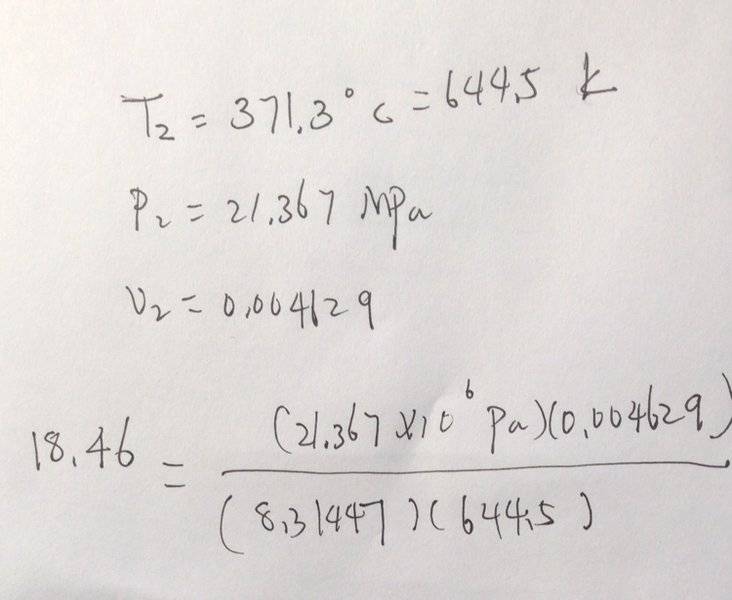 T₂ = 371.3°C = 644.5 K
P₂ = 21.367 MPa
υ₂ = 0.004629
18.46 = (21.367 x10⁶ Pa)(0.004629)
(8.31447)(644.5)